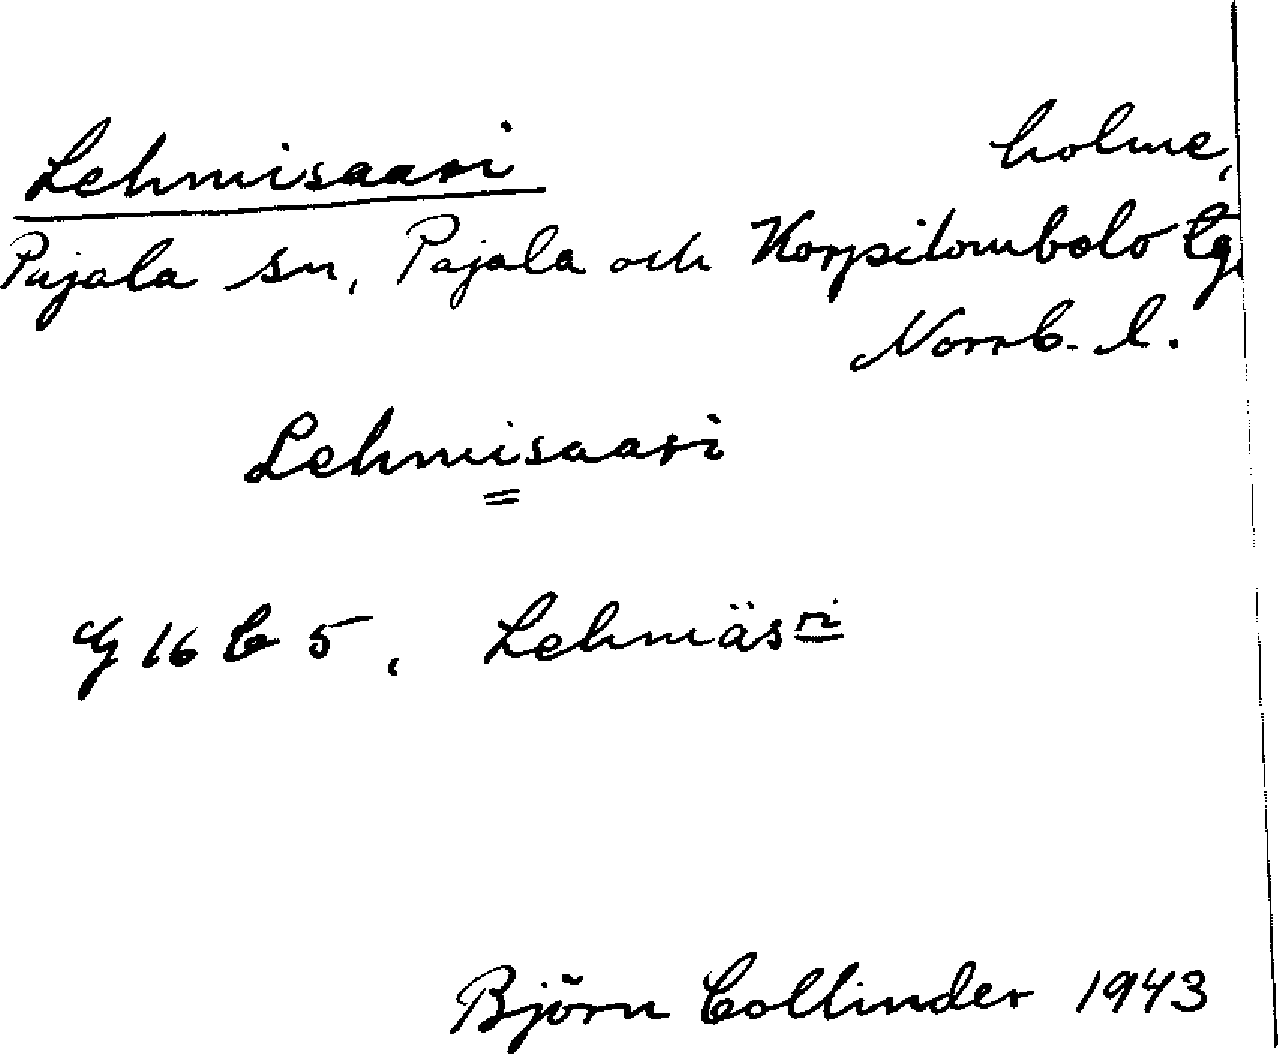 Lehmisaari holme,
Pajala sn, Pajala och Korpilombolo tg,
Norrb. l.
Lehmisaari
G 16 b 5, Lehmäsri
Björn Collinder 1943